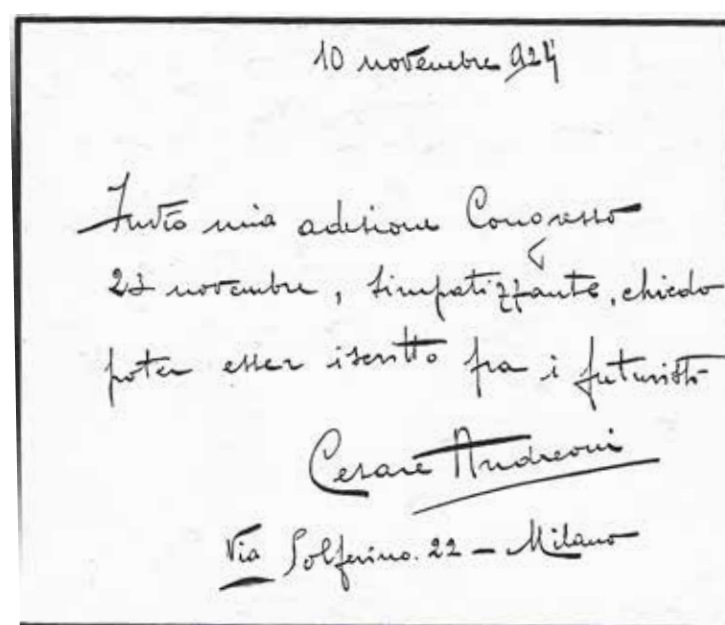 10 novembre 924
Invio mia adesione Congresso
23 novembre, simpatizzante, chiedo
poter esser iscritto fra i futuristi
Cesare Andreoni
Via Solferino. 22 - Milano